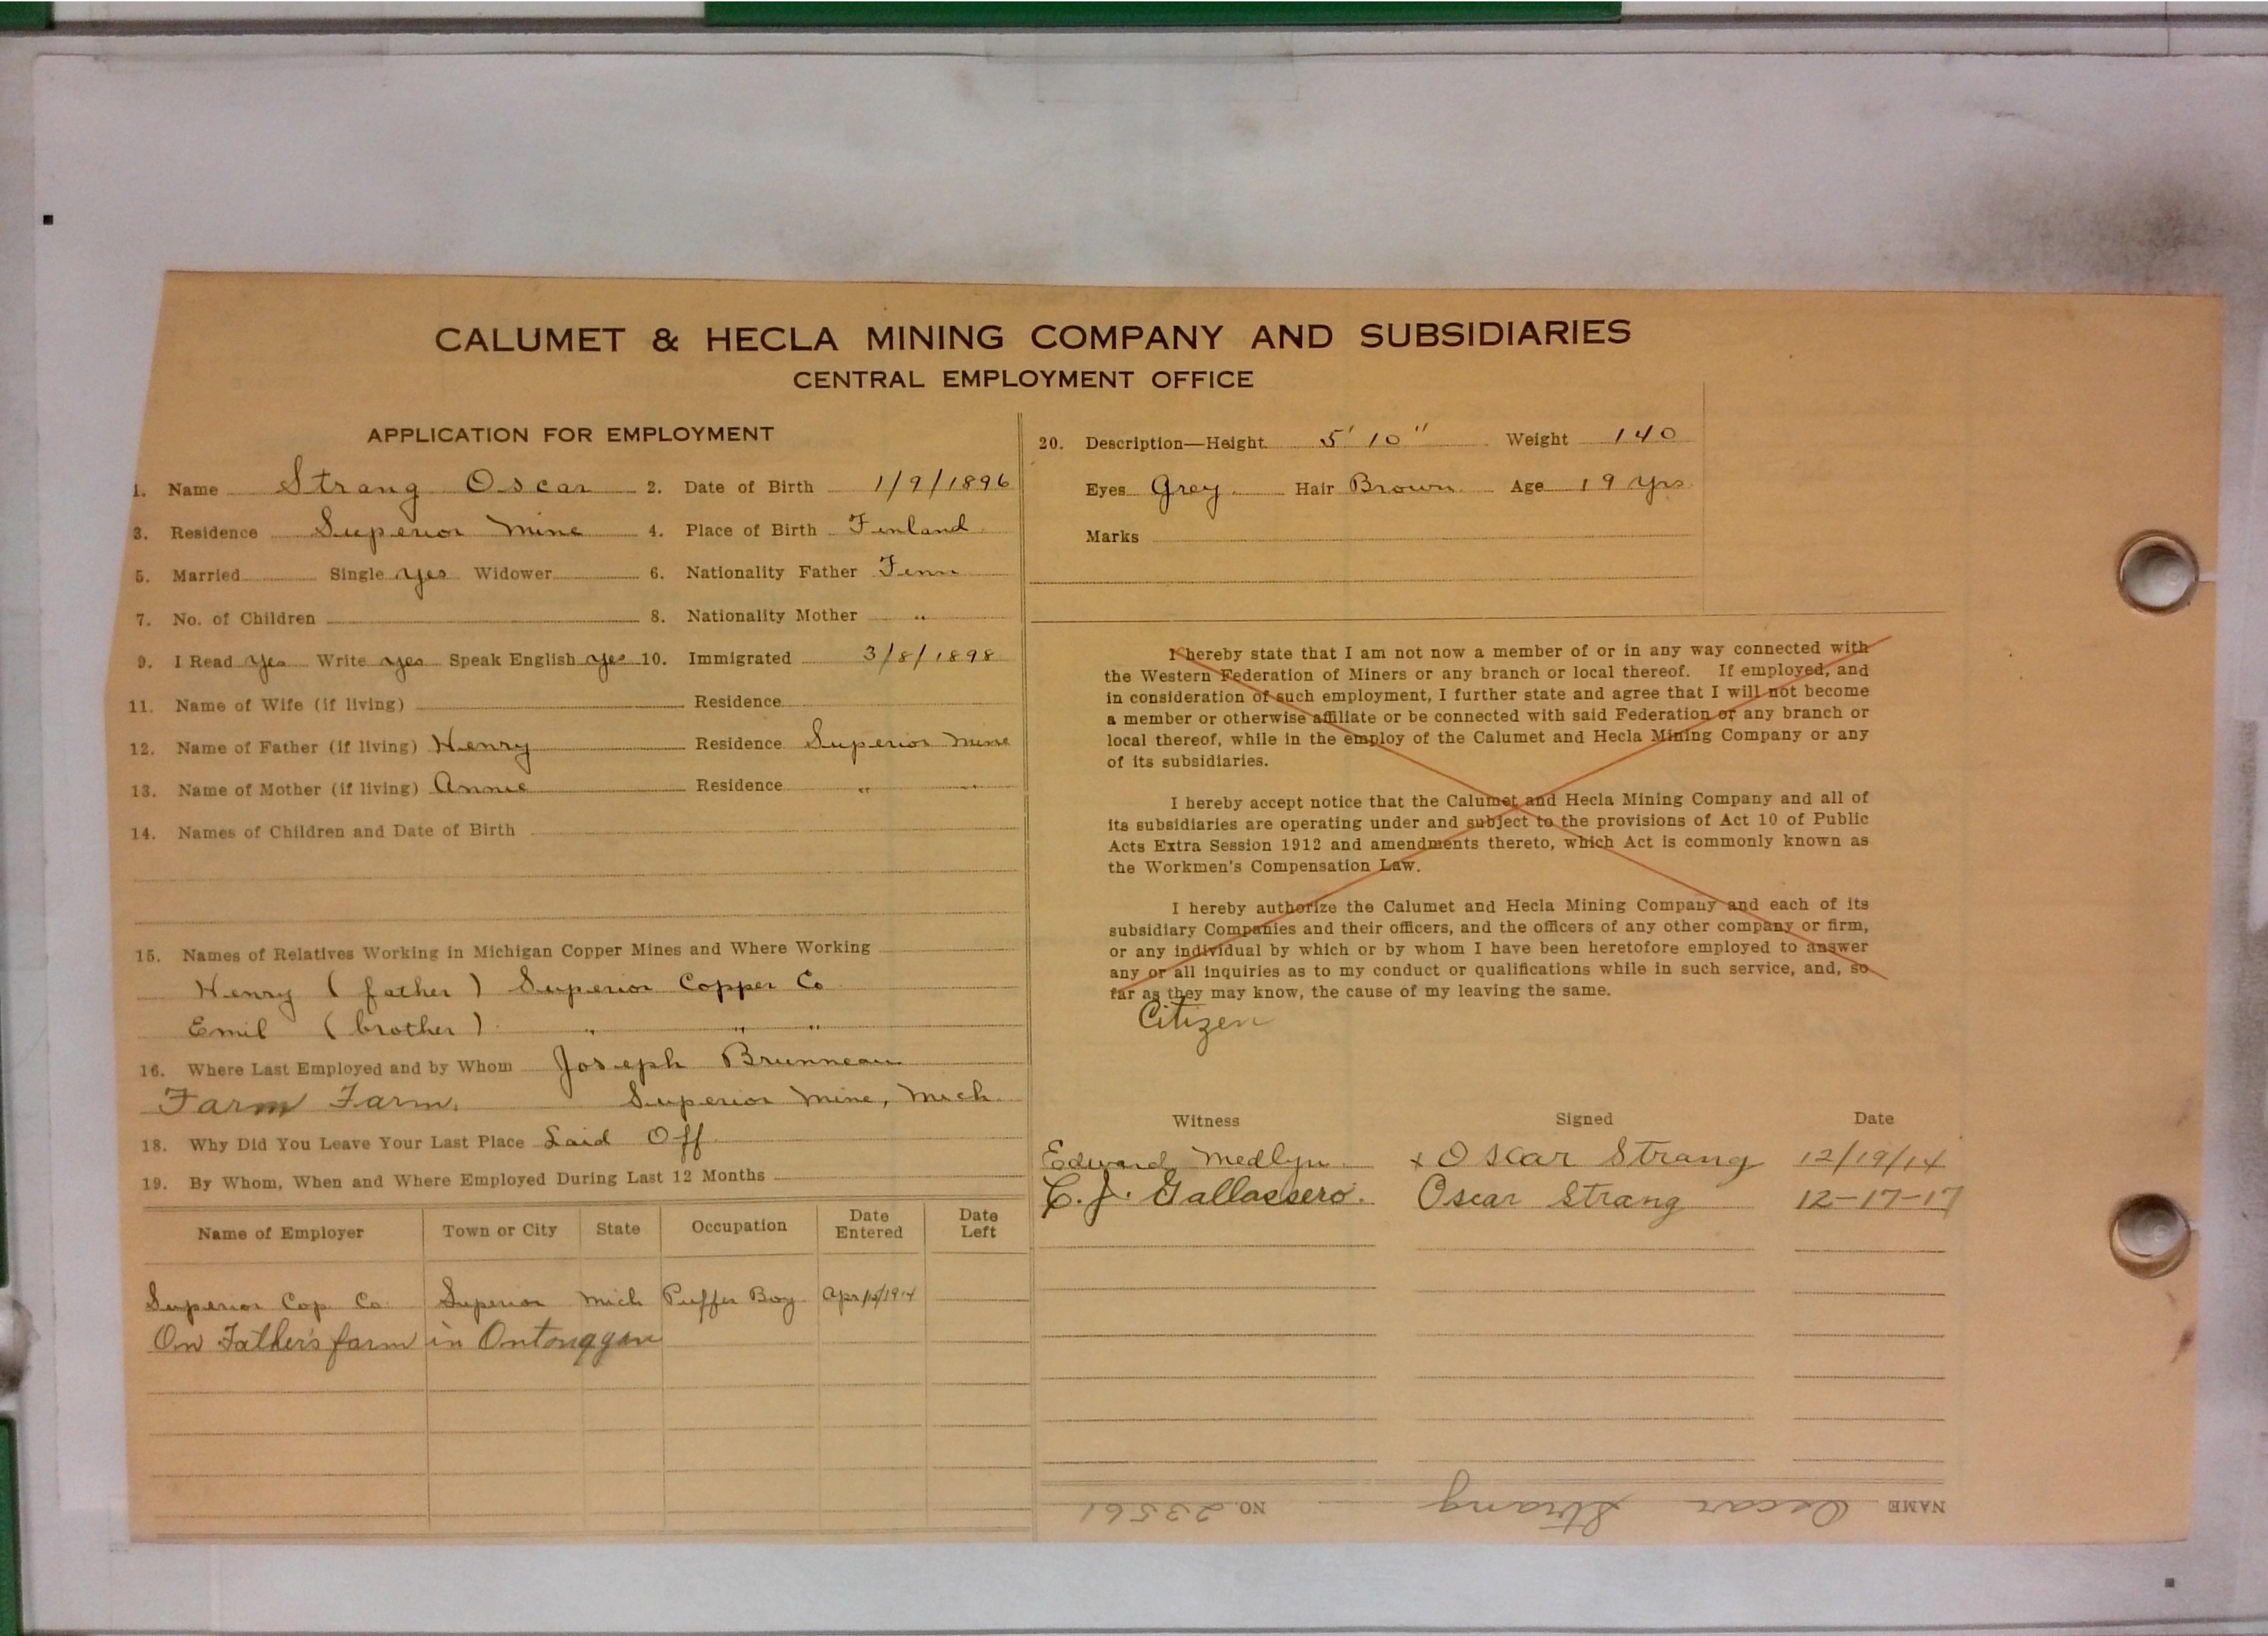 CALUMET & HECLA MINING COMPANY AND SUBSIDIARIES
CENTRAL EMPLOYMENT OFFICE
APPLICATION FOR EMPLOYMENT
1. Name Strang Oscar 2. Date of Birth 1/9/1896
3. Residence Superior Mine 4. Place of Birth Finland
5. Married Single yes Widower 6. Nationality Father Finn
7. No. of Children 8. Nationality Mother "
9. I Read yes Write yes Speak English yes 10. Immigrated 3/8/1898
11. Name of Wife (if living) Residence
12. Name of Father (if living) Henry Residence Superior Mine
13. Name of Mother (if living) Annie Residence " "
14. Names of Children and Date of Birth
15. Names of Relatives Working in Michigan Copper Mines and Where Working
Henry (father) Superior Copper Co
Emil (brother) " " "
16. Where Last Employed and by Whom Joseph Brunneau
Farm Farm. Superior Mine, Mich.
18. Why Did You Leave Your Last Place Laid Off
19. By Whom, When and Where Employed During Last 12 Months
Name of Employer Town or City State Occupation Date Entered Date Left
Superior Cop. Co. Superior Mich Puffer Boy Apr/15/1914
On Father's farm in Ontonggan
20. Description—Height 5' 10" Weight 140
Eyes Grey. Hair Brown. Age 19 yrs.
Marks
I hereby state that I am not now a member of or in any way connected with
the Western Federation of Miners or any branch or local thereof. If employed, and
in consideration of such employment, I further state and agree that I will not become
a member or otherwise affiliate or be connected with said Federation or any branch or
local thereof, while in the employ of the Calumet and Hecla Mining Company or any
of its subsidiaries.
I hereby accept notice that the Calumet and Hecla Mining Company and all of
its subsidiaries are operating under and subject to the provisions of Act 10 of Public
Acts Extra Session 1912 and amendments thereto, which Act is commonly known as
the Workmen's Compensation Law.
I hereby authorize the Calumet and Hecla Mining Company and each of its
subsidiary Companies and their officers, and the officers of any other company or firm,
or any individual by which or by whom I have been heretofore employed to answer
any or all inquiries as to my conduct or qualifications while in such service, and, so
far as they may know, the cause of my leaving the same.
Citizen
Witness Signed Date
Edward Medlyn. x Oscar Strang 12/19/14
C. J. Gallassero. Oscar Strang 12-17-17
NAME Oscar Strang NO. 23561